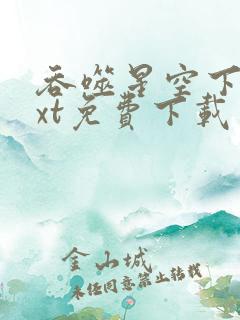 吞噬星空下
xt免费下载
金山城
未经同意禁止转载